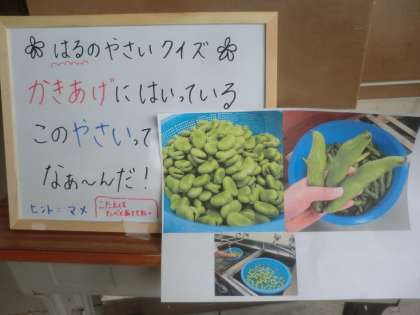 はるのやさいクイズ
かきあげにはいっている
このやさいって
なぁ〜んだ！
ヒント：マメ
こたえは